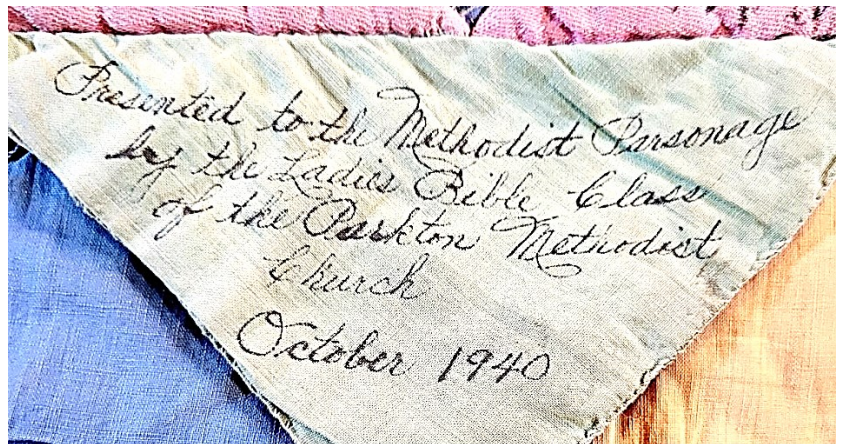 Presented to the Methodist Parsonage
by the Ladies Bible Class
of the Parkton Methodist
Church
October 1940